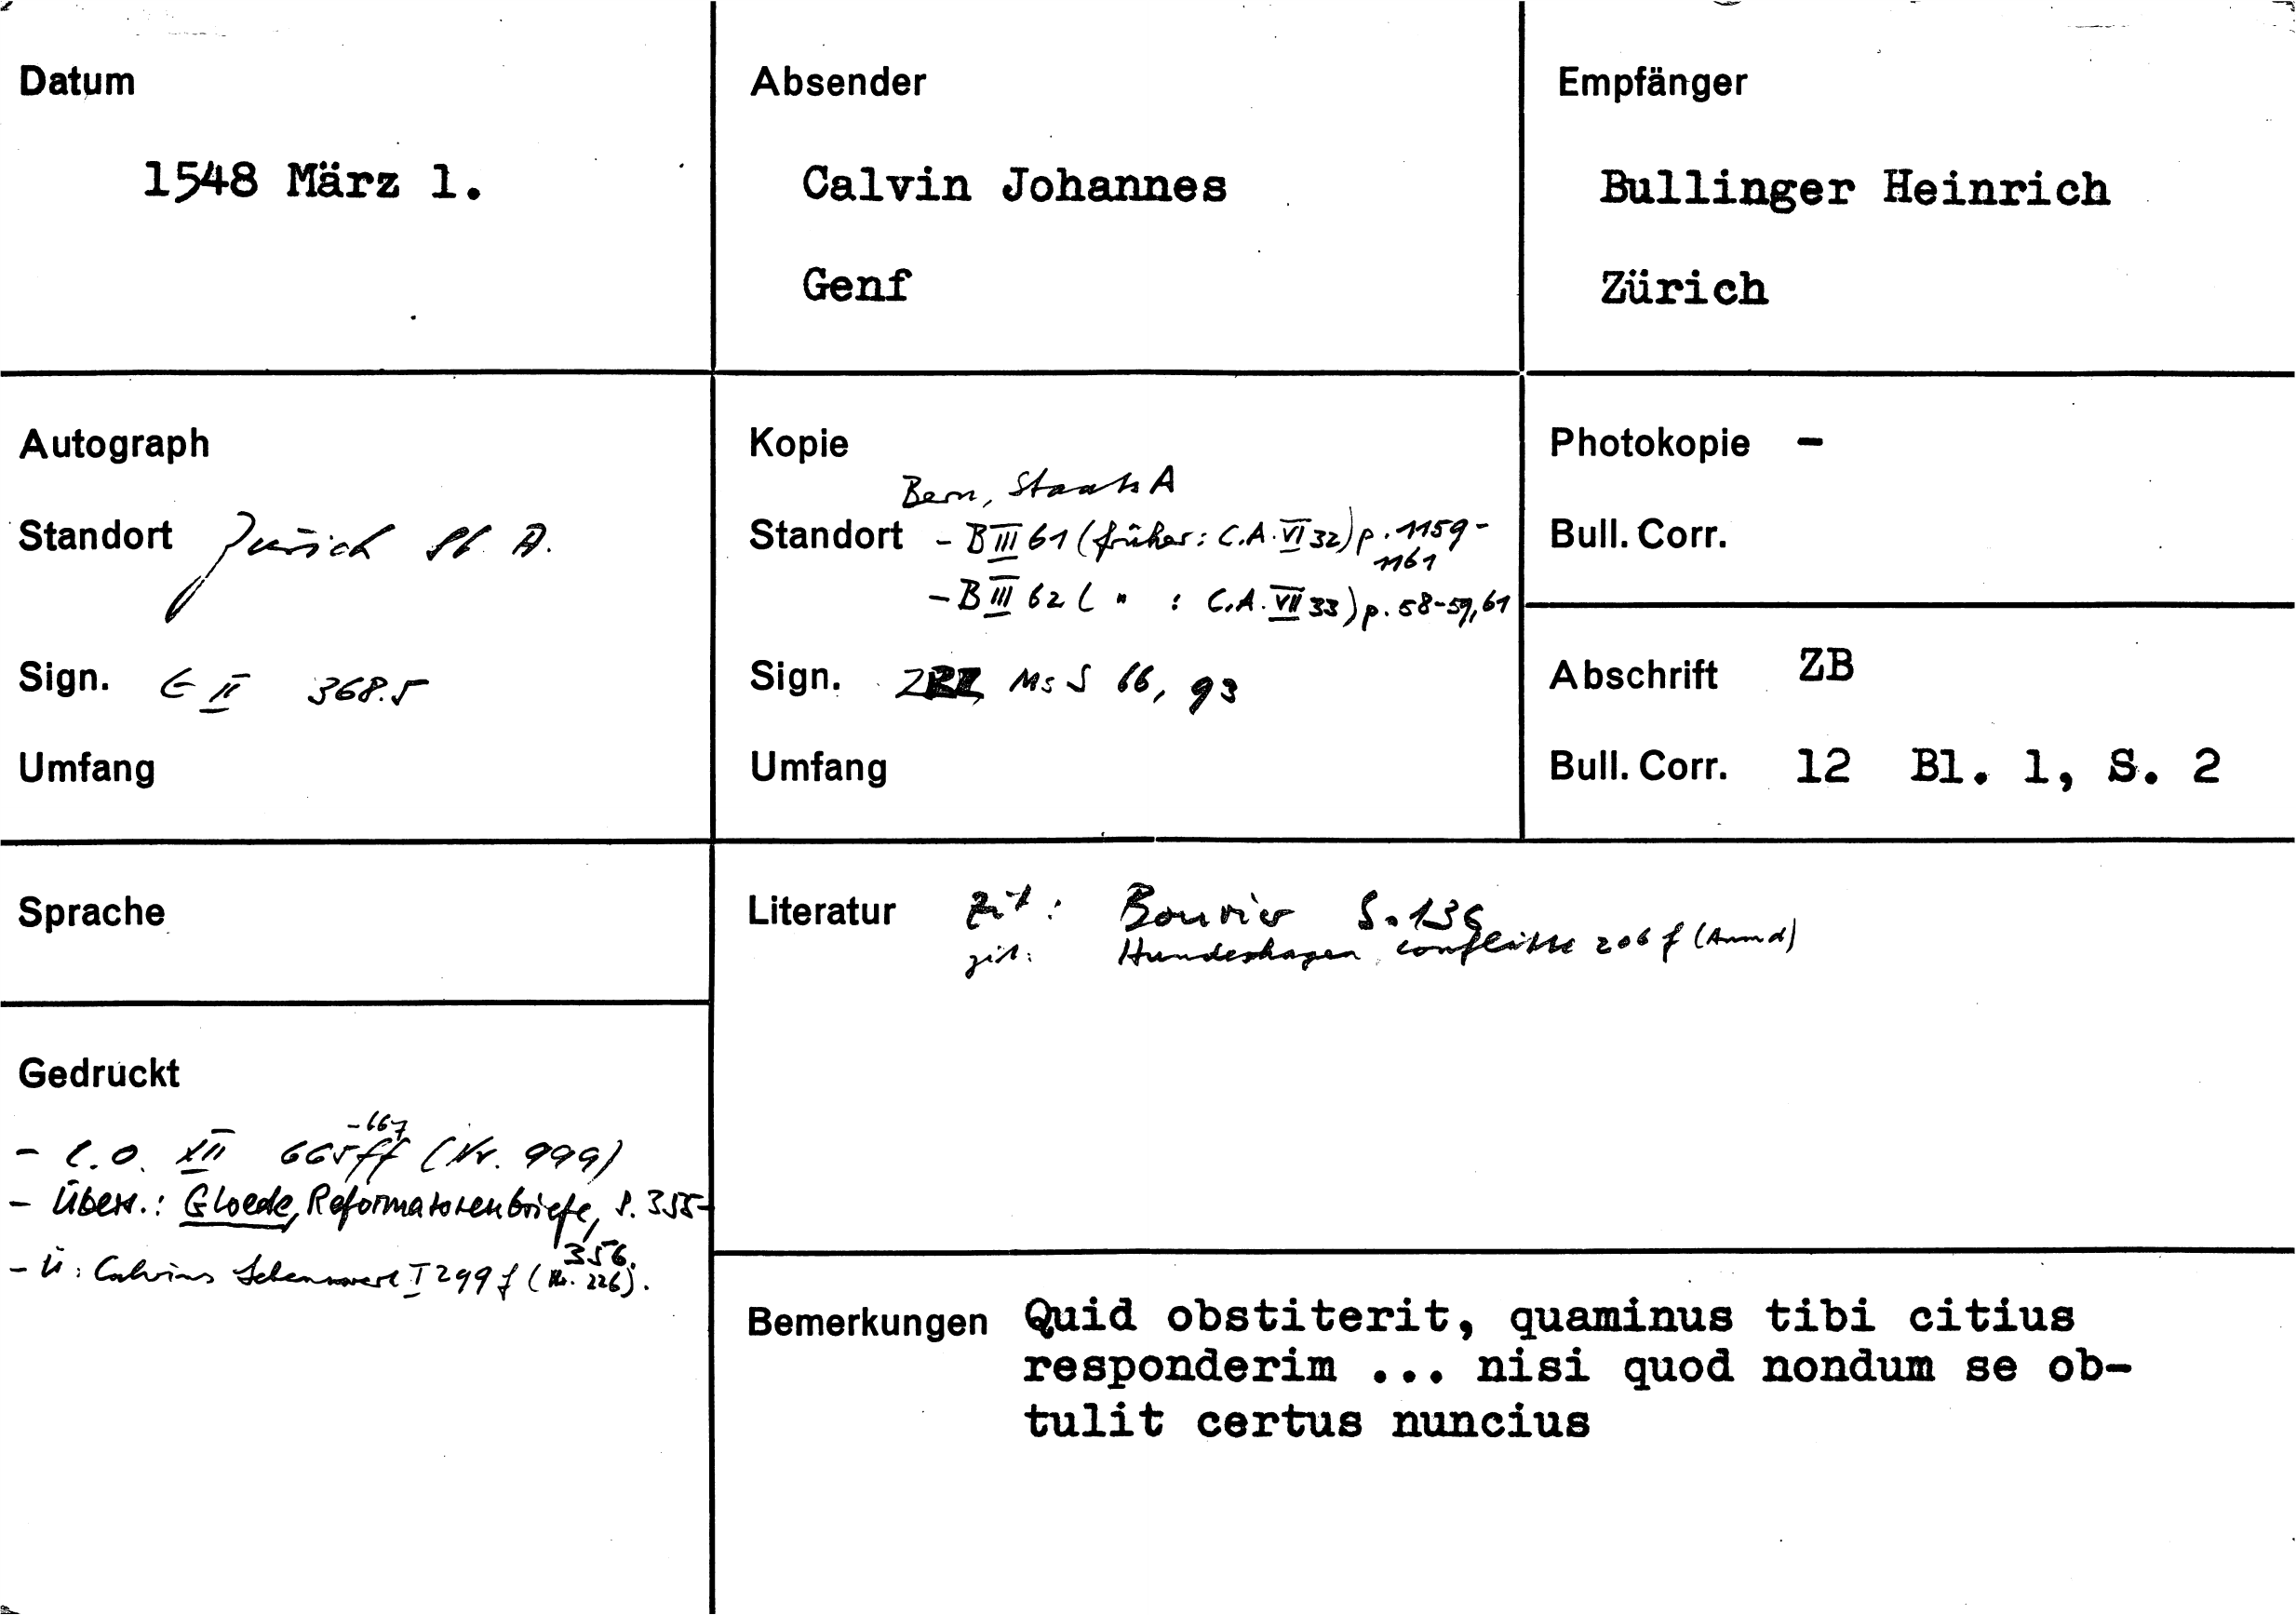 Datum
1548 März 1.
Absender
Calvin Johannes
Genf
Empfänger
Bullinger Heinrich
Zürich
Autograph
Standort Zürich St. A.
Sign. E II 368.5
Umfang
Kopie
Bern, Staats A
Standort - B III 61 (früher: C.A. VI 32) p. 1159-
1161
- B III 62 ( " : C.A. VII 33) p. 58-59, 61
Sign. ZBZ Ms S 66, 93
Umfang
Photokopie -
Bull. Corr.
Abschrift ZB
Bull. Corr. 12 Bl. 1, S. 2
Sprache
Literatur Zit: Bouvier S. 136
zit: Hundeshagen, Conflikte 206 f (Anm d)
Gedruckt
-667
- C.O. XII 665ff (Nr. 999)
- Übers.: Gloede, Reformatorenbriefe, S. 355-
356.
- Ü: Calvins Lebenswerk I 299 f (Nr. 226).
Bemerkungen Quid obstiterit, quaminus tibi citius
responderim ... nisi quod nondum se ob-
tulit certus nuncius